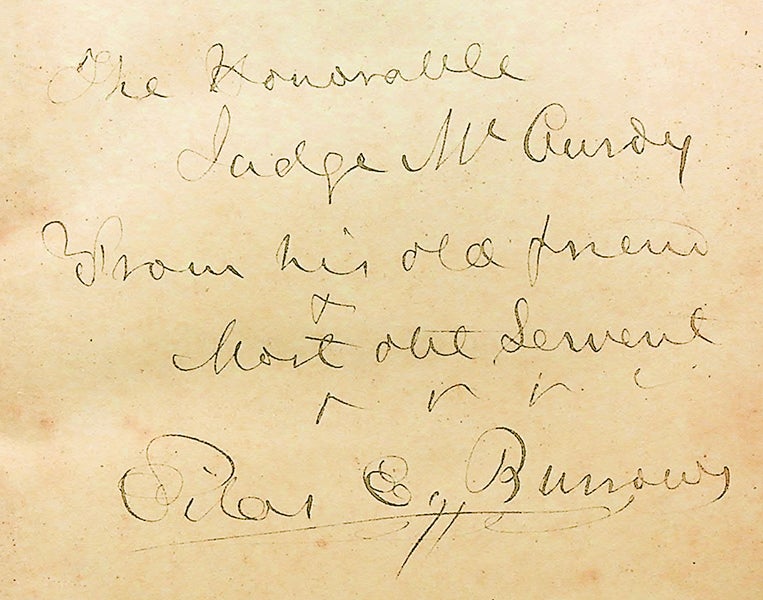 The Honorable
Judge Mc Curdy
From his old friend
+
Most obt Servent
Silas E. Burrows